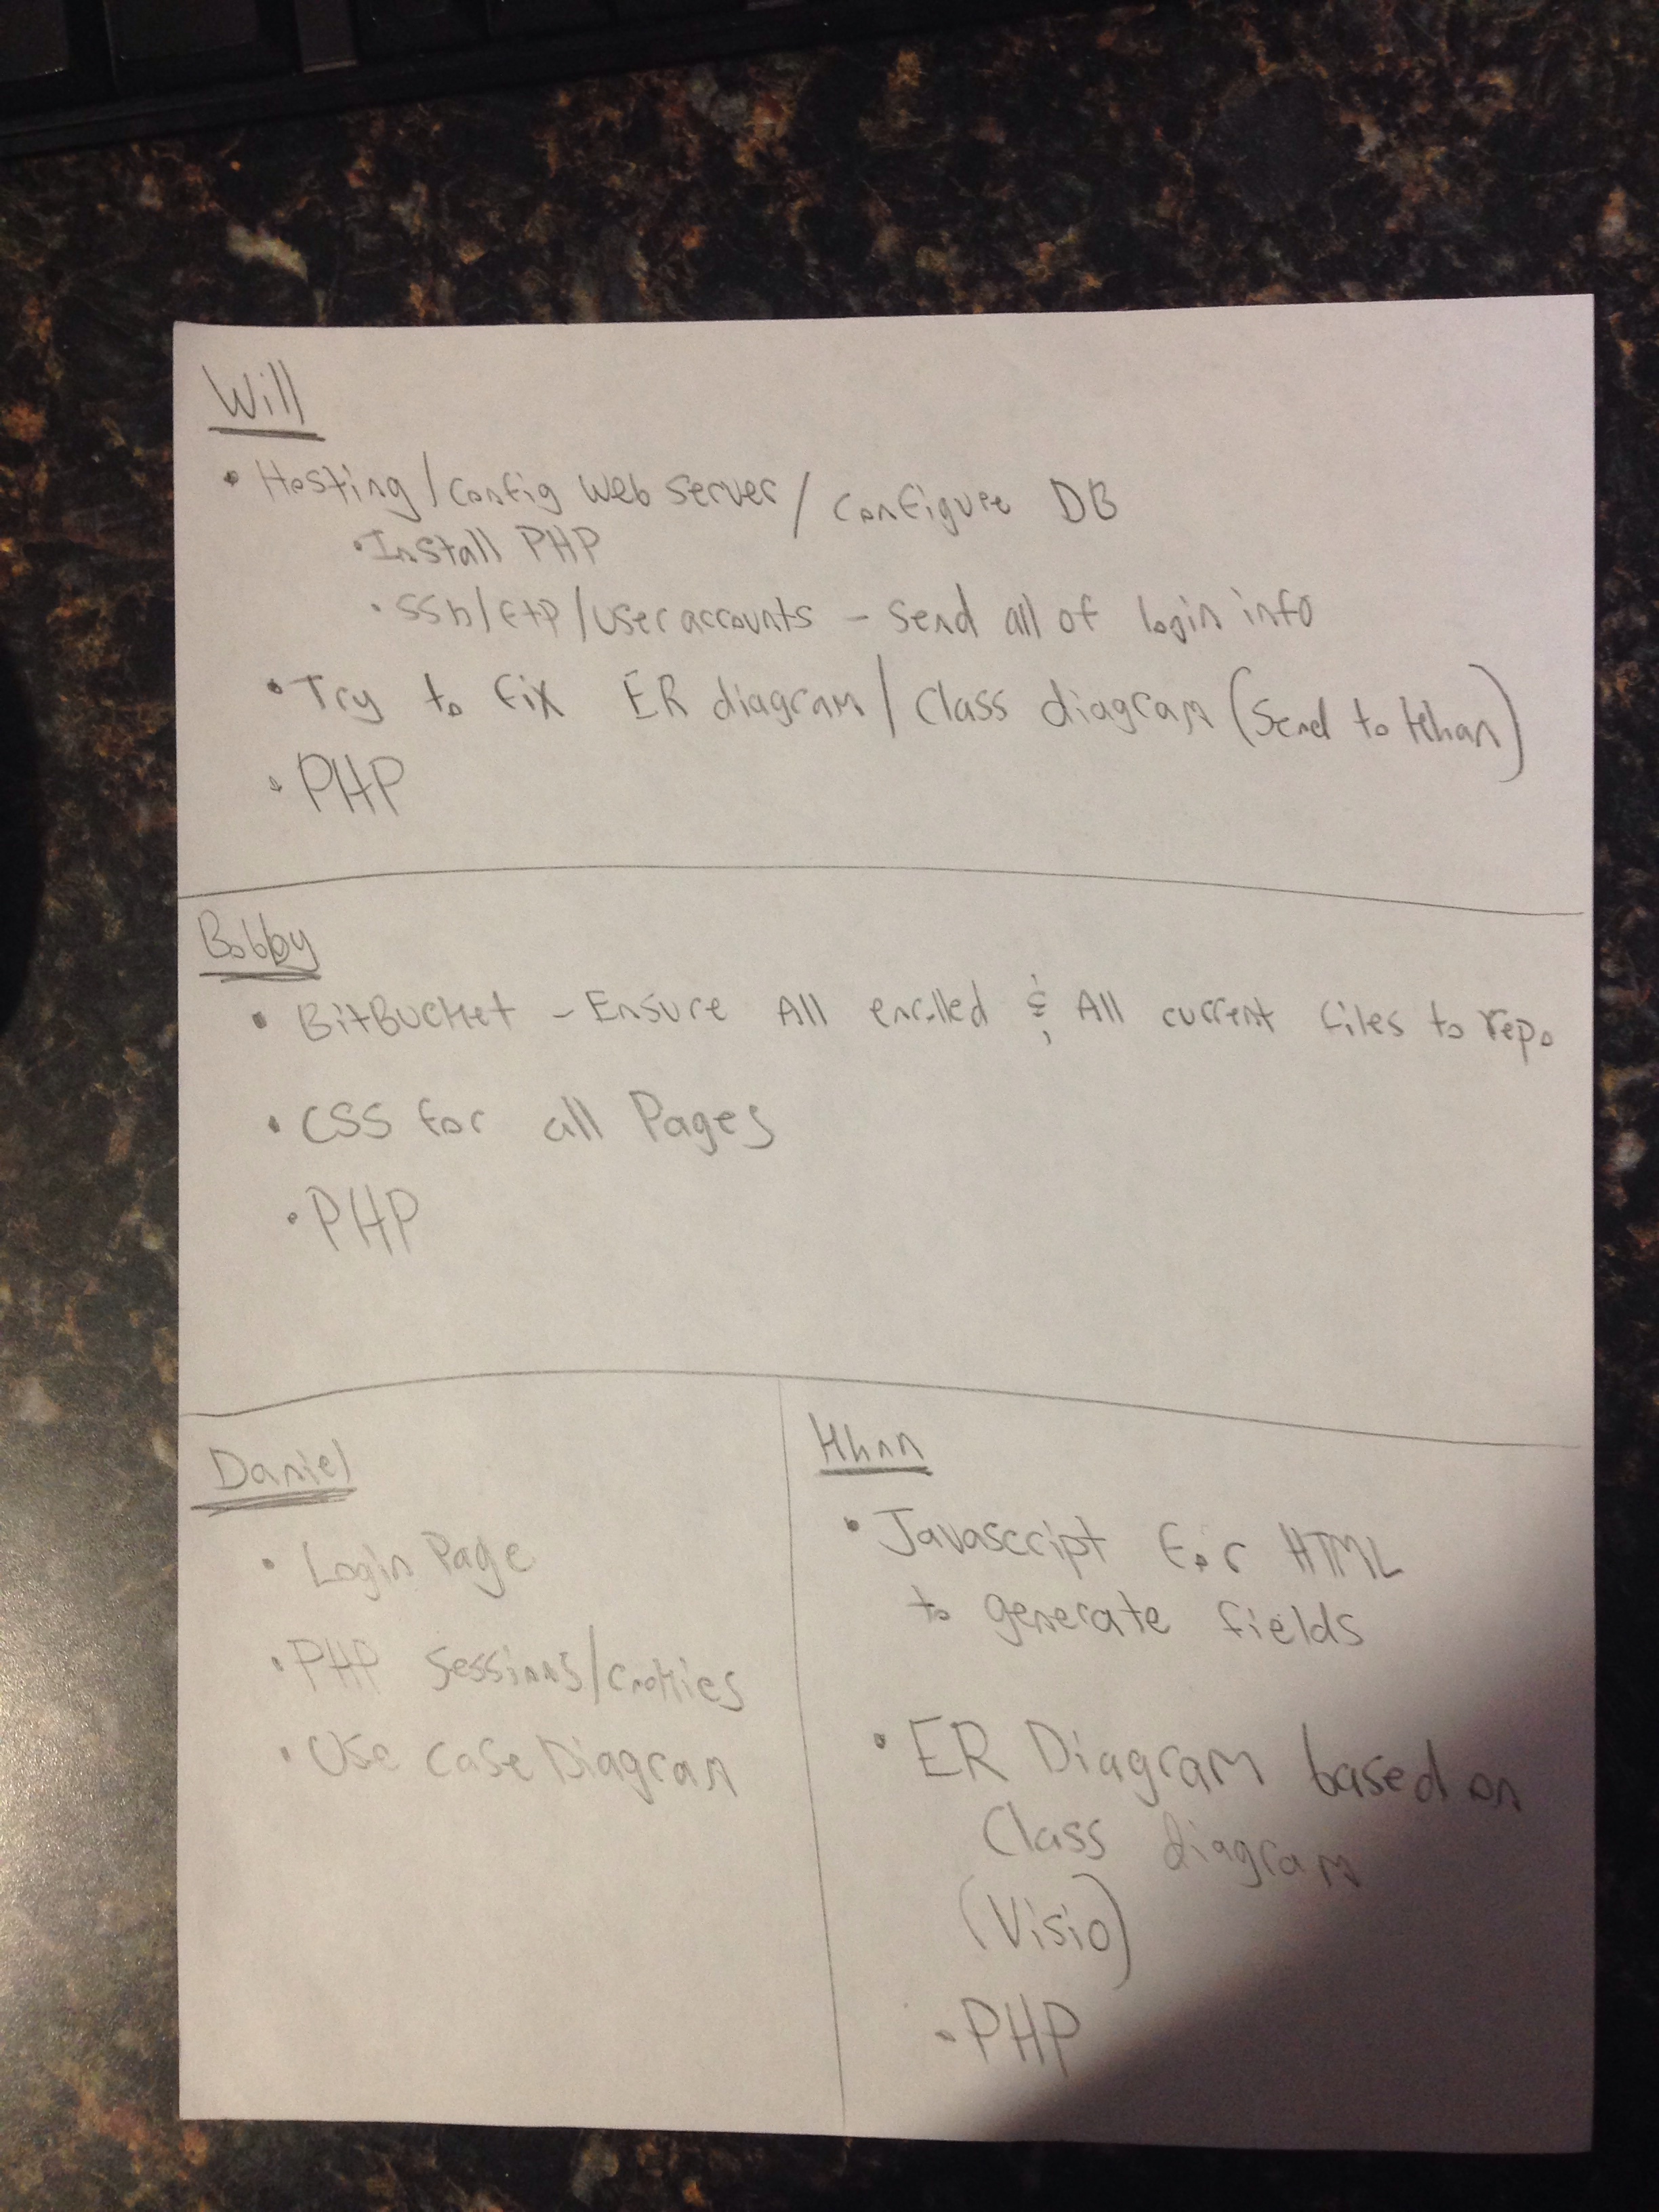 Will
• Hosting/config web server/configure DB
• Install PHP
• ssh/ftp/user accounts - send all of login info
• Try to fix ER diagram/class diagram (send to Khan)
• PHP
Bobby
• BitBucket - Ensure All enrolled & All current files to repo
• CSS for all Pages
• PHP
Daniel
• Login Page
• PHP sessions/cookies
• Use case Diagram
Khan
• Javascript for HTML
to generate fields
• ER Diagram based on
Class diagram
(Visio)
• PHP